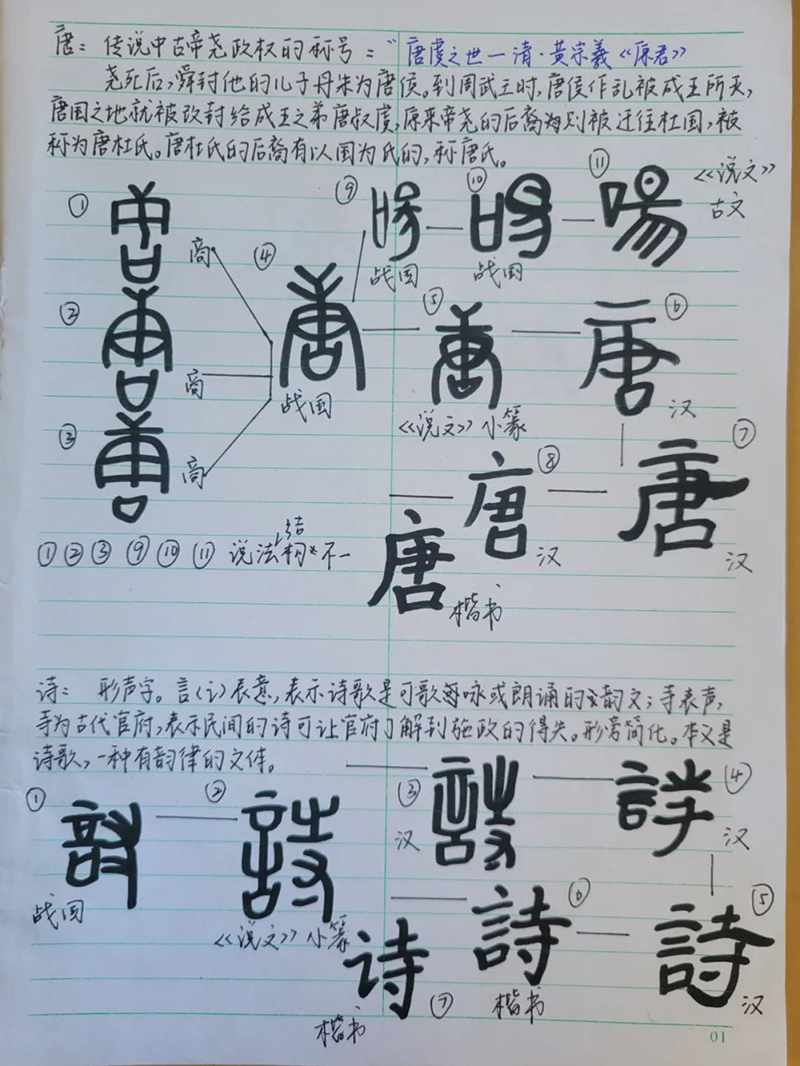 唐：传说中古帝尧政权的称号："唐虞之世—清·黄宗羲《原君》
尧死后，舜封他的儿子丹朱为唐侯。到周武王时，唐侯作乱被成王所灭，
唐国之地就被改封给成王之弟唐叔虞，原来帝尧的后裔则被迁往杜国，被
称为唐杜氏。唐杜氏的后裔有以国为氏的，称唐氏。
⑨ ⑩ ⑪ 《说文》
古文
战国 战国
① 商
② 商
③ 商
④ 唐 战国
⑤ 唐 《说文》小篆
⑥ 唐 汉
⑦ 唐 汉
⑧ 唐 汉
唐 楷书
①②③⑨⑩⑪ 说法结构不一
诗：形声字。言(讠)表意，表示诗歌是可歌咏或朗诵的韵文；寺表声，
寺为古代官府，表示民间的诗可让官府了解到施政的得失。形旁简化。本义是
诗歌，一种有韵律的文体。
① 战国
② 詩 《说文》小篆
③ 詩 汉
④ 詩 汉
⑤ 詩 汉
⑥ 詩 楷书
⑦ 诗 楷书
01